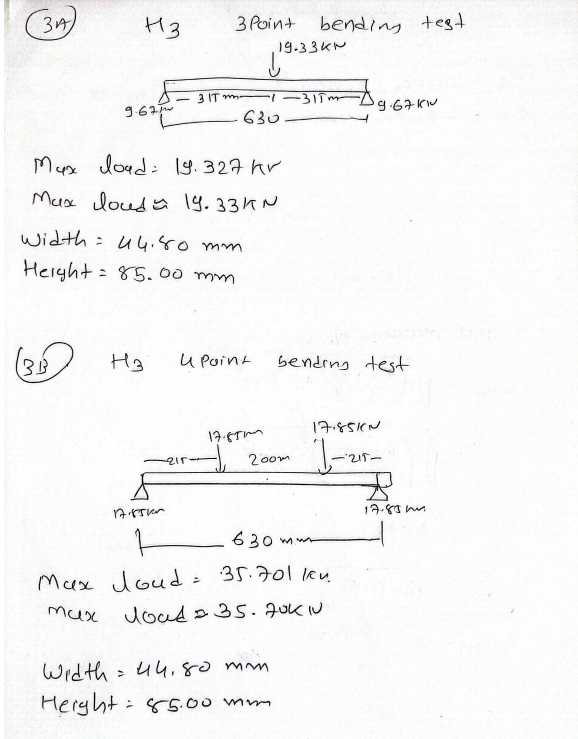 3A H3 3Point bending test
19.33KN
315mm 315mm
9.67KN 9.67KN
630
Max load = 19.327 KN
Max load ≈ 19.33KN
Width = 44.80 mm
Height = 85.00 mm
3B H3 4Point bending test
17.85KN 17.85KN
215 200m 215
17.85KN 17.85KN
630 mm
Max load = 35.701 KN
Max load ≈ 35.70KN
Width = 44.80 mm
Height = 85.00 mm